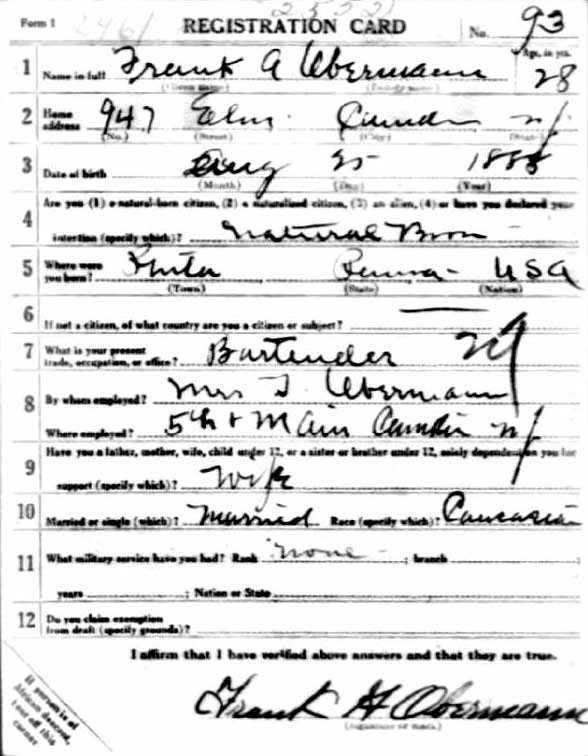 Form 1
REGISTRATION CARD
No. 93
Age, in yrs.
1 Name in full Frank A Obermann 28
(Given name) (Family name)
2 Home address 947 Elm Camden NJ
(No.) (Street) (City) (State)
3 Date of birth Aug 25 1888
(Month) (Day) (Year)
4 Are you (1) a natural-born citizen, (2) a naturalized citizen, (3) an alien, (4) or have you declared your
intention (specify which)? Natural Born
5 Where were you born? Penna USA
(Town) (State) (Nation)
6 If not a citizen, of what country are you a citizen or subject?
7 What is your present trade, occupation, or office? Bartender
8 By whom employed? Mrs Obermann
Where employed? 5th + Main Camden NJ
9 Have you a father, mother, wife, child under 12, or a sister or brother under 12, solely dependent on you for
support (specify which)? Wife
10 Married or single (which)? Married Race (specify which)? Caucasian
11 What military service have you had? Rank none ; branch ;
years ; Nation or State
12 Do you claim exemption from draft (specify grounds)?
I affirm that I have verified above answers and that they are true.
If person is of
African descent,
tear off this
corner
Frank Obermann